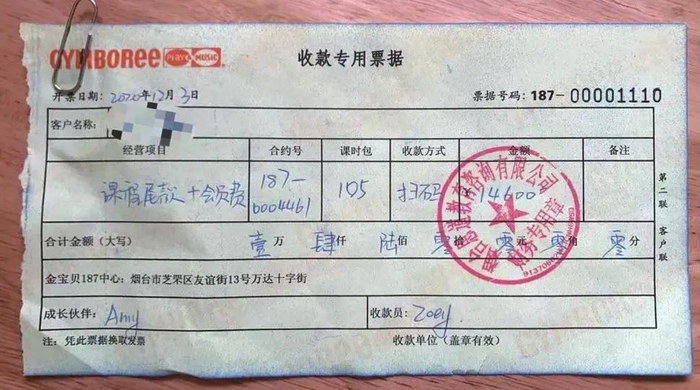 GYMBOREE PLAY & MUSIC 收款专用票据
开票日期: 2020年12月3日 票据号码: 187-00001110
客户名称:
经营项目 合约号 课时包 收款方式 金额 备注
课程尾款+会员费 187-0004461 105 扫码 14600
合计金额 (大写) 壹万 肆仟 陆佰 零拾 零元 零角 零分
金宝贝187中心: 烟台市芝罘区友谊街13号万达十字街
成长伙伴: Amy 收款员: Zoey
注: 凭此票据换取发票 收款单位 (盖章有效)
第二联 客户联
教育咨询有限公司
财务专用章